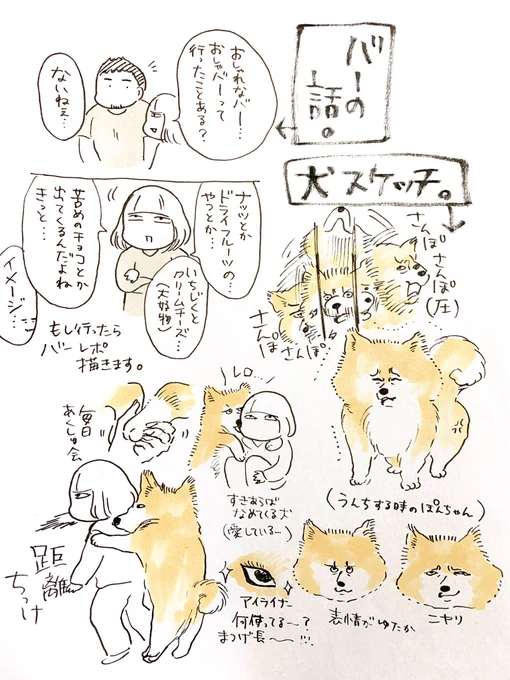 バーの
話。
おしゃれなバー…
おしゃバーって
行ったことある？
ないねぇ…
ナッツとか
ドライフルーツの…
やつとか…
いちじくと
クリームチーズ…
(大好物)
苦めのチョコとか
出てくるんだよね
きっと…
イメージ…
もし行ったら
バーレポ
描きます。
犬スケッチ。
さんぽ
さんぽ
(圧)
さんぽ
さんぽ
(うんちする時のぽんちゃん)
毎日
あくしゅ会
レロ…
すきあらば
なめてくる犬
(愛している…)
距離
ちっけ
アイライナー
何使ってる〜？
まつげ長〜!!!
表情がゆたか
ニヤリ